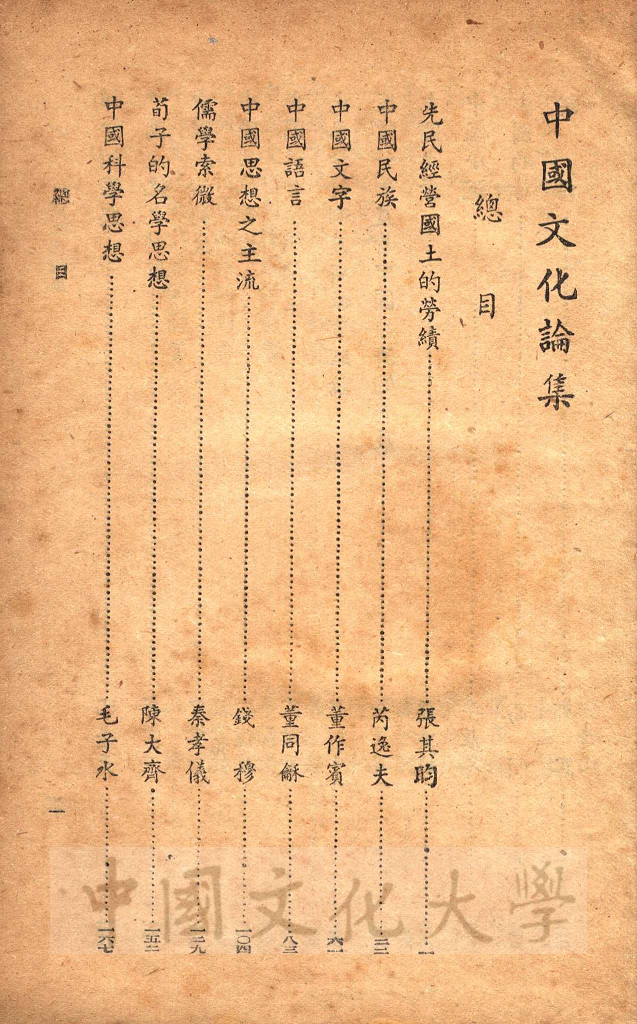 中國文化論集
總目
先民經營國土的勞績 張其昀 一
中國民族 芮逸夫 三二
中國文字 董作賓 六一
中國語言 董同龢 八三
中國思想之主流 錢穆 一〇四
儒學索微 秦孝儀 一二九
荀子的名學思想 陳大齊 一五二
中國科學思想 毛子水 一六七
總目
一
中國文化大學